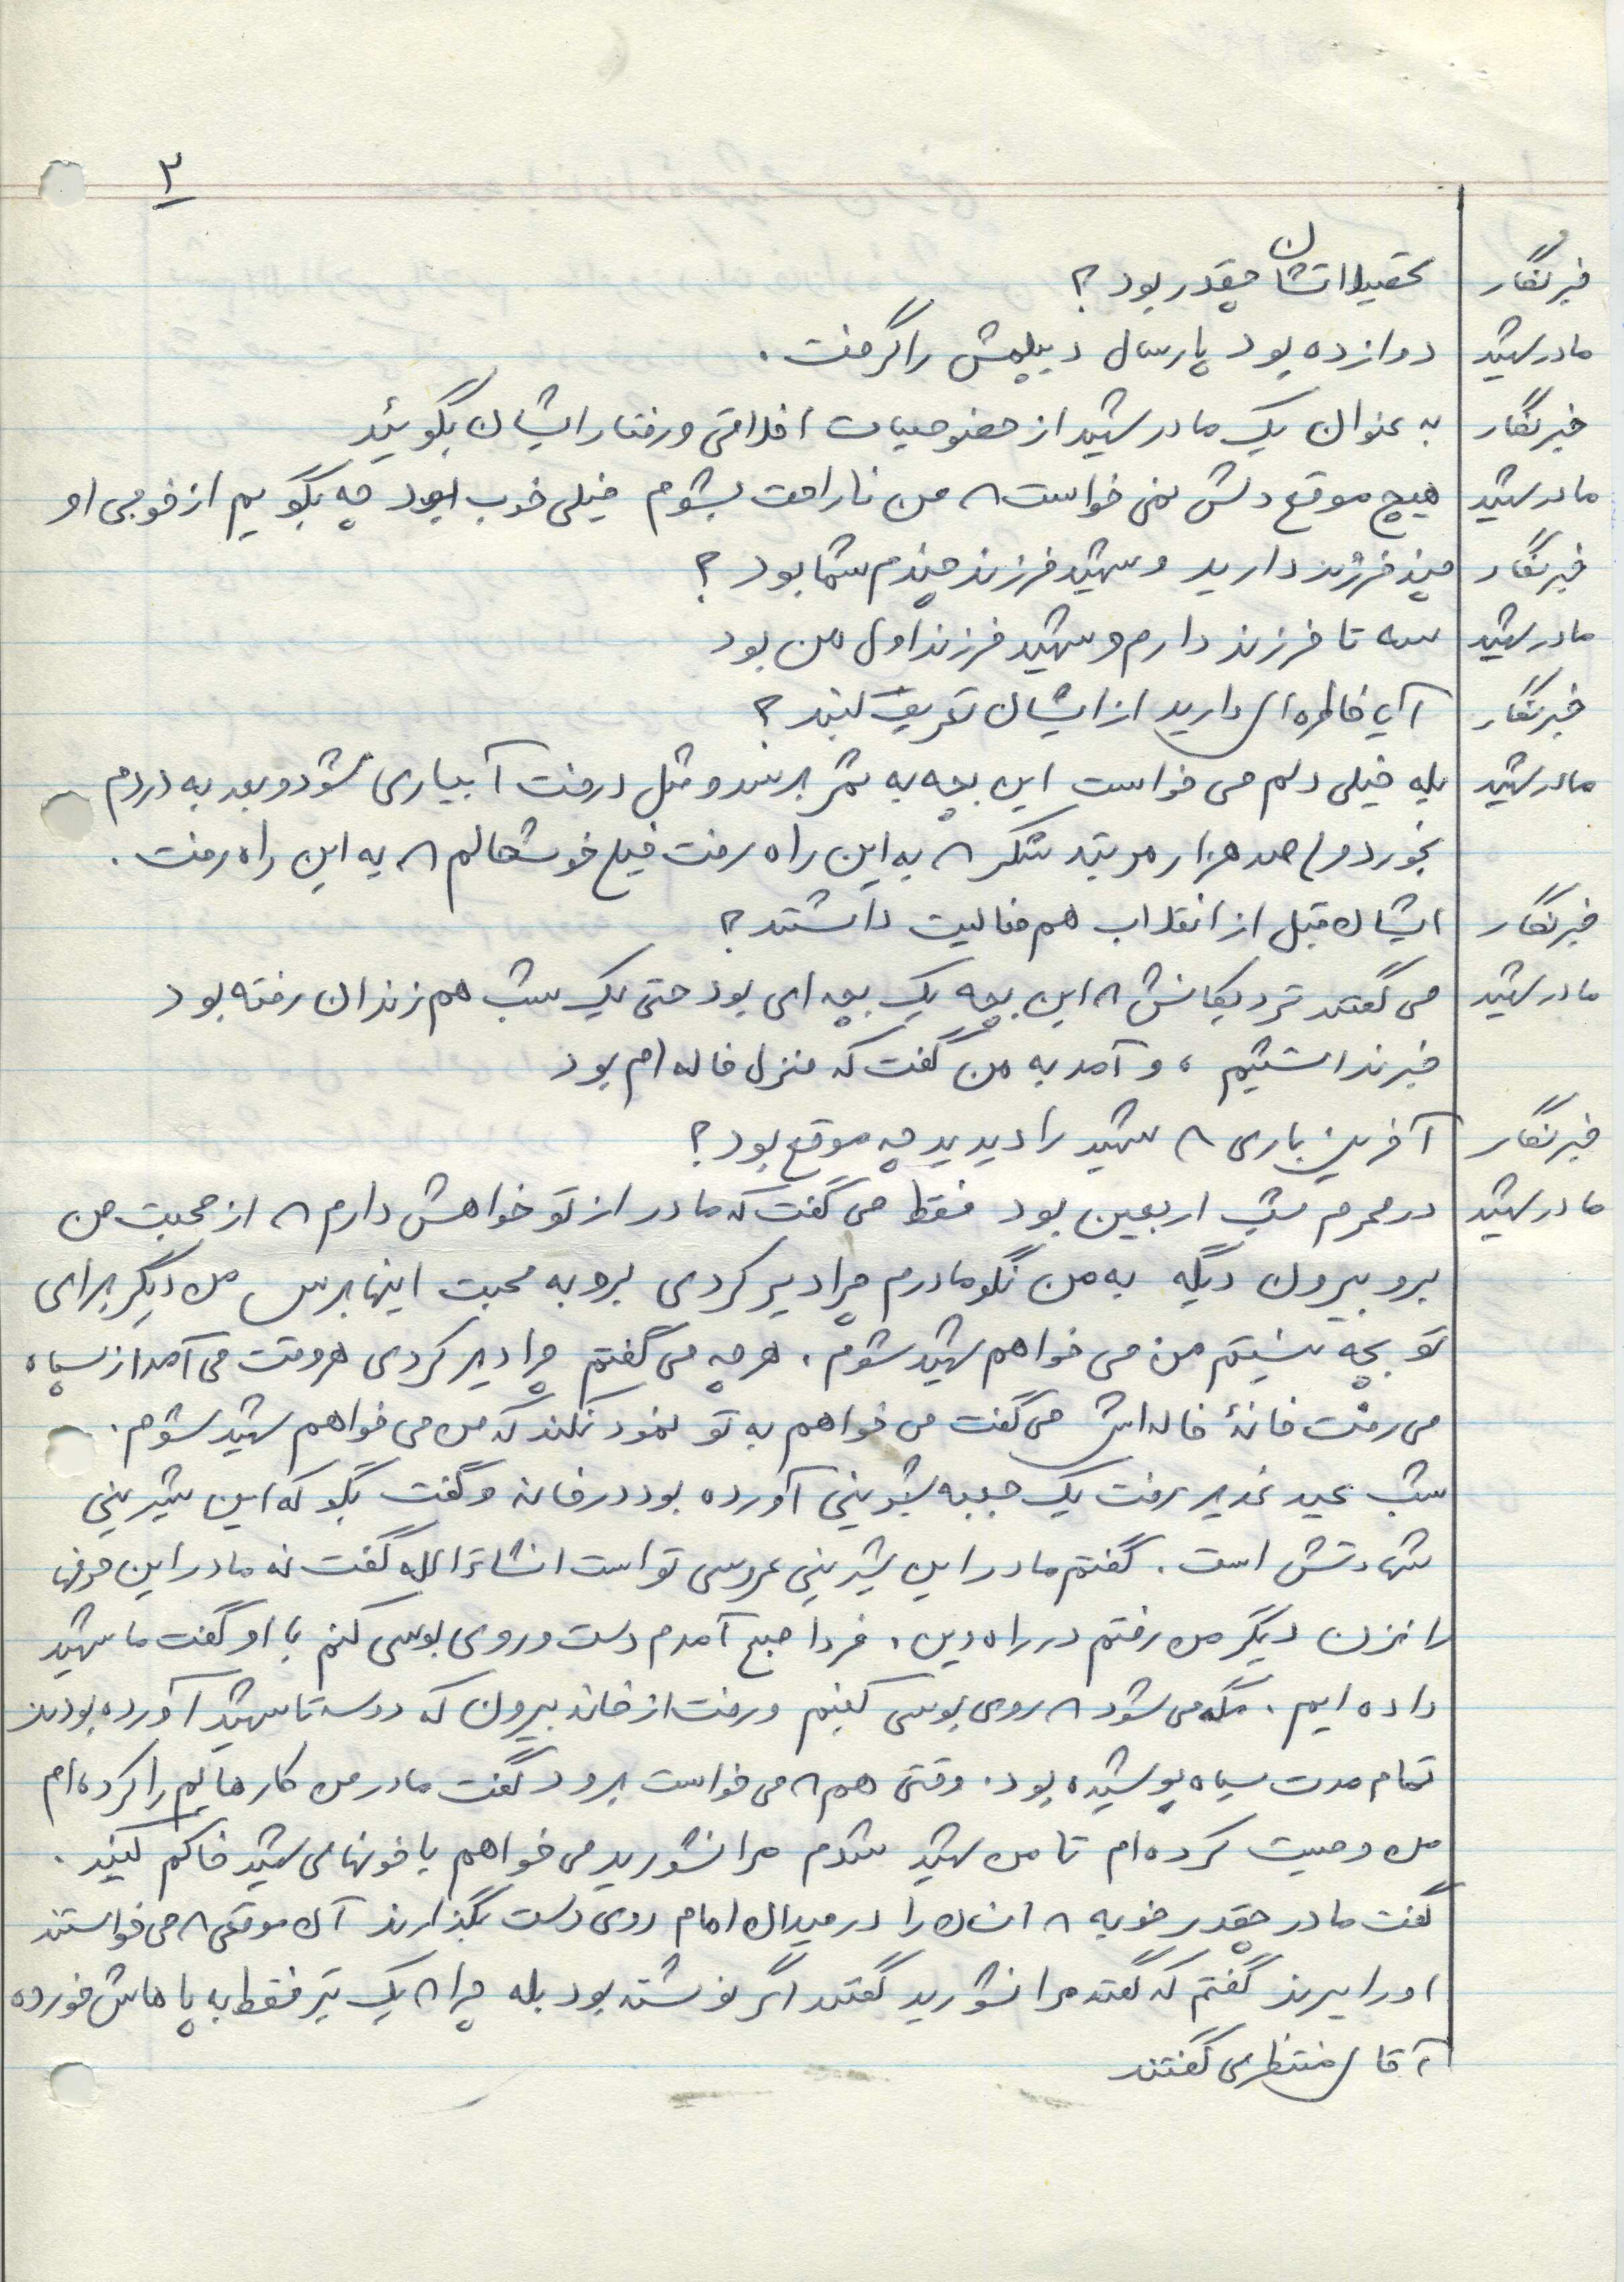 ۲
خبرنگار تحصیلاتشان چقدر بود ؟
مادر شهید دوازده بود پارسال دیپلمش را گرفت .
خبرنگار به عنوان یک مادر شهید از خصوصیات اخلاقی و رفتار ایشان بگوئید
مادر شهید هیچ موقع دلش نمی خواست ۸ من ناراحت بشوم خیلی خوب بود چه بگویم از خوبی او
خبرنگار چند فرزند دارید و شهید فرزند چندم شما بود ؟
مادر شهید سه تا فرزند دارم و شهید فرزند اول من بود
خبرنگار آیا خاطره ای دارید از ایشان تعریف کنید ؟
مادر شهید بله خیلی دلم می خواست این بچه به ثمر برسد و مثل درخت آبیاری شود و بعد به دردم
بخورد صد هزار مرتبه شکر ۸ به این راه رفت خیلی خوشحالم ۸ به این راه رفت .
خبرنگار ایشان قبل از انقلاب هم فعالیت داشتند ؟
مادر شهید می گفتند نزدیکانش ۸ این بچه یک بچه ای بود حتی یک شب هم زندان رفته بود
خبر نداشتیم ، و آمد به من گفت که منزل خاله ام بود
خبرنگار آخرین باری ۸ شهید را دیدید چه موقع بود ؟
مادر شهید در محرم شب اربعین بود فقط می گفت که مادر از تو خواهش دارم ۸ از محبت من
برو بیرون دیگه به من نگو مادرم چرا دیر کردی برو به محبت اینها برس من دیگر برای
تو بچه نیستم من می خواهم شهید شوم . هر چه می گفتم چرا دیر کردی هر وقت می آمد از سپاه
می رفت خانهٔ خاله اش می گفت می خواهم به تو نمود نکند که من می خواهم شهید شوم .
شب عید غدیر رفت یک جعبه شیرینی آورده بود در خانه و گفت بگو که این شیرینی
شهادتش است . گفتم مادر این شیرینی عروسی تو است انشاءالله گفت نه مادر این حرفها
را نزن دیگر من رفتم در راه دین . فردا صبح آمدم دست و روی بوسی کنم با او گفت ما شهید
داده ایم . مگه می شود ۸ روی بوسی کنیم و رفت از خانه بیرون که دو سه تا شهید آورده بودند
تمام مدت سیاه پوشیده بود . وقتی هم ۸ می خواست برود گفت مادر من کارهایم را کرده ام
من وصیت کرده ام تا من شهید شدم مرا نشورید می خواهم با خونهای شهید خاکم کنید .
گفت مادر چقدر خوبه ۸ انسان را در میدان امام روی دست بگذارند آن موقعی ۸ می خواستند
او را ببرند گفتم که گفته مرا نشورید گفتند اگر نوشته بود بله چرا ۸ یک تیر فقط به پاهاش خورده
آقای منتظری گفتند